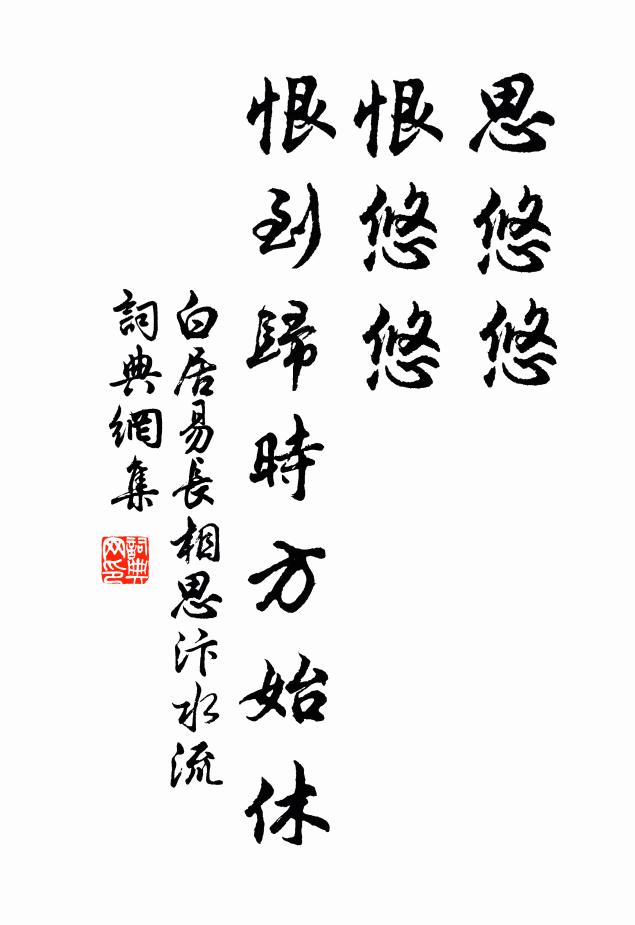 思悠悠
恨悠悠
恨到歸時方始休
白居易長相思汴水流
詞典網集
詞典网印